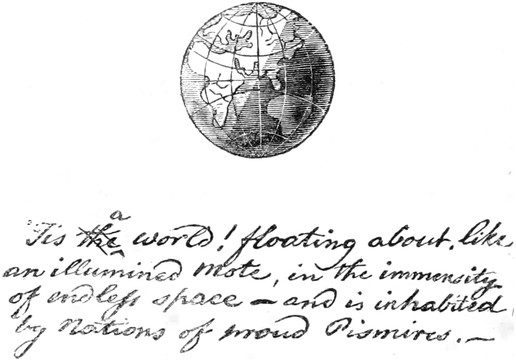 'Tis the a world! floating about, like
an illumined mote, in the immensity
of endless space — and is inhabited
by Nations of proud Pismires. —